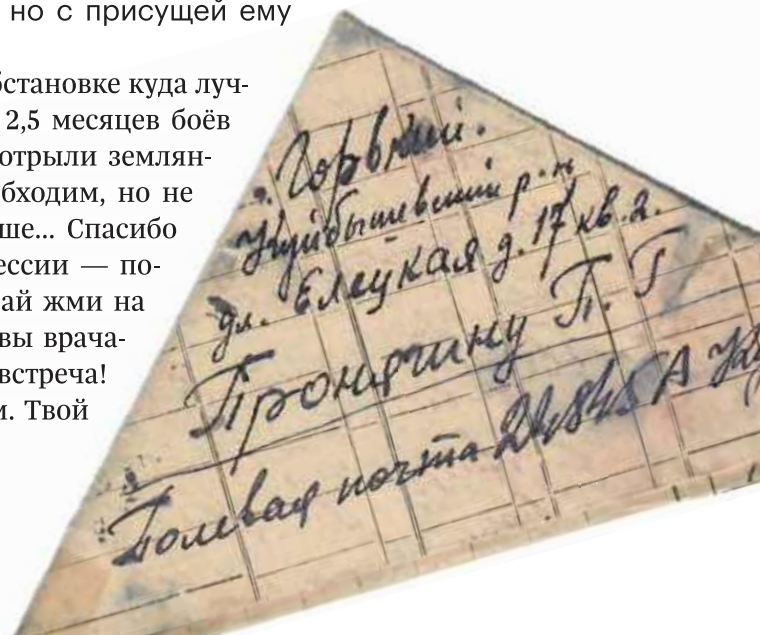 но с присущей ему
бстановке куда луч-
2,5 месяцев боёв
отрыли землян-
бходим, но не
ше... Спасибо
ессии — по-
ай жми на
вы врача-
встреча!
и. Твой
г. Горький.
Куйбышевский р-н
ул. Елецкая д. 17 кв. 2.
Пронячину П. Г
Полевая почта 24845 А